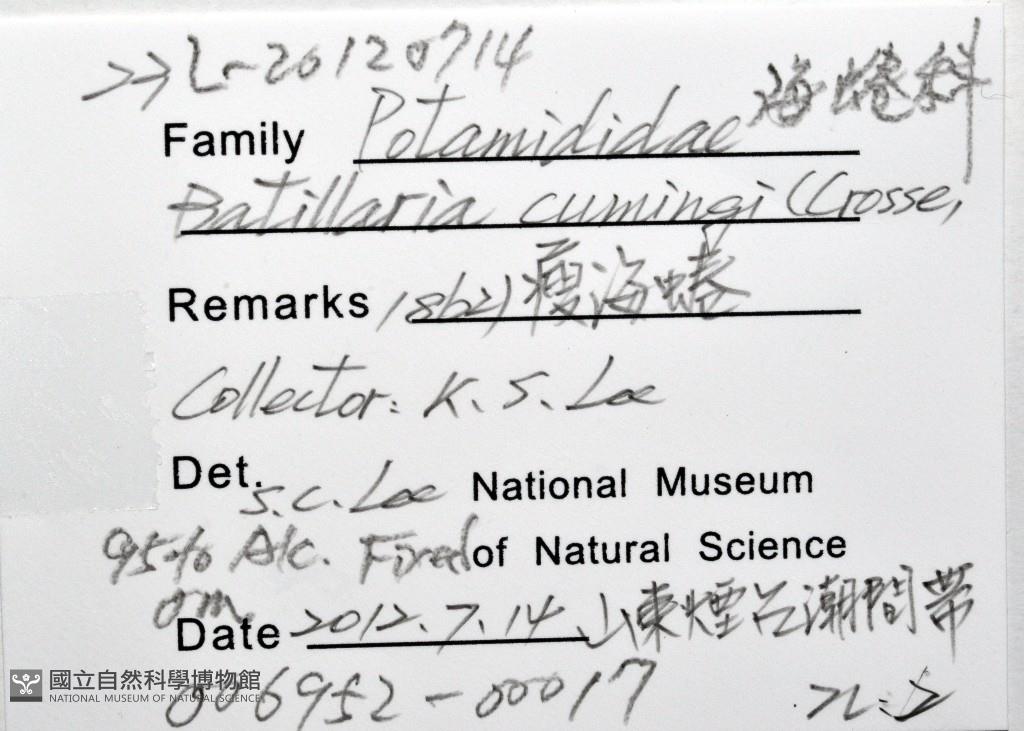 L-20120714
Family Potamididae 海蜷科
Batillaria cumingi (Crosse,
Remarks 1862) 瘦海蜷
Collector: K. S. Lee
Det. S.C. Lee National Museum
95% Alc. Fixed of Natural Science
0m
Date 2012.7.14 山東煙台潮間帶
006952-00017 n=2
國立自然科學博物館
NATIONAL MUSEUM OF NATURAL SCIENCE